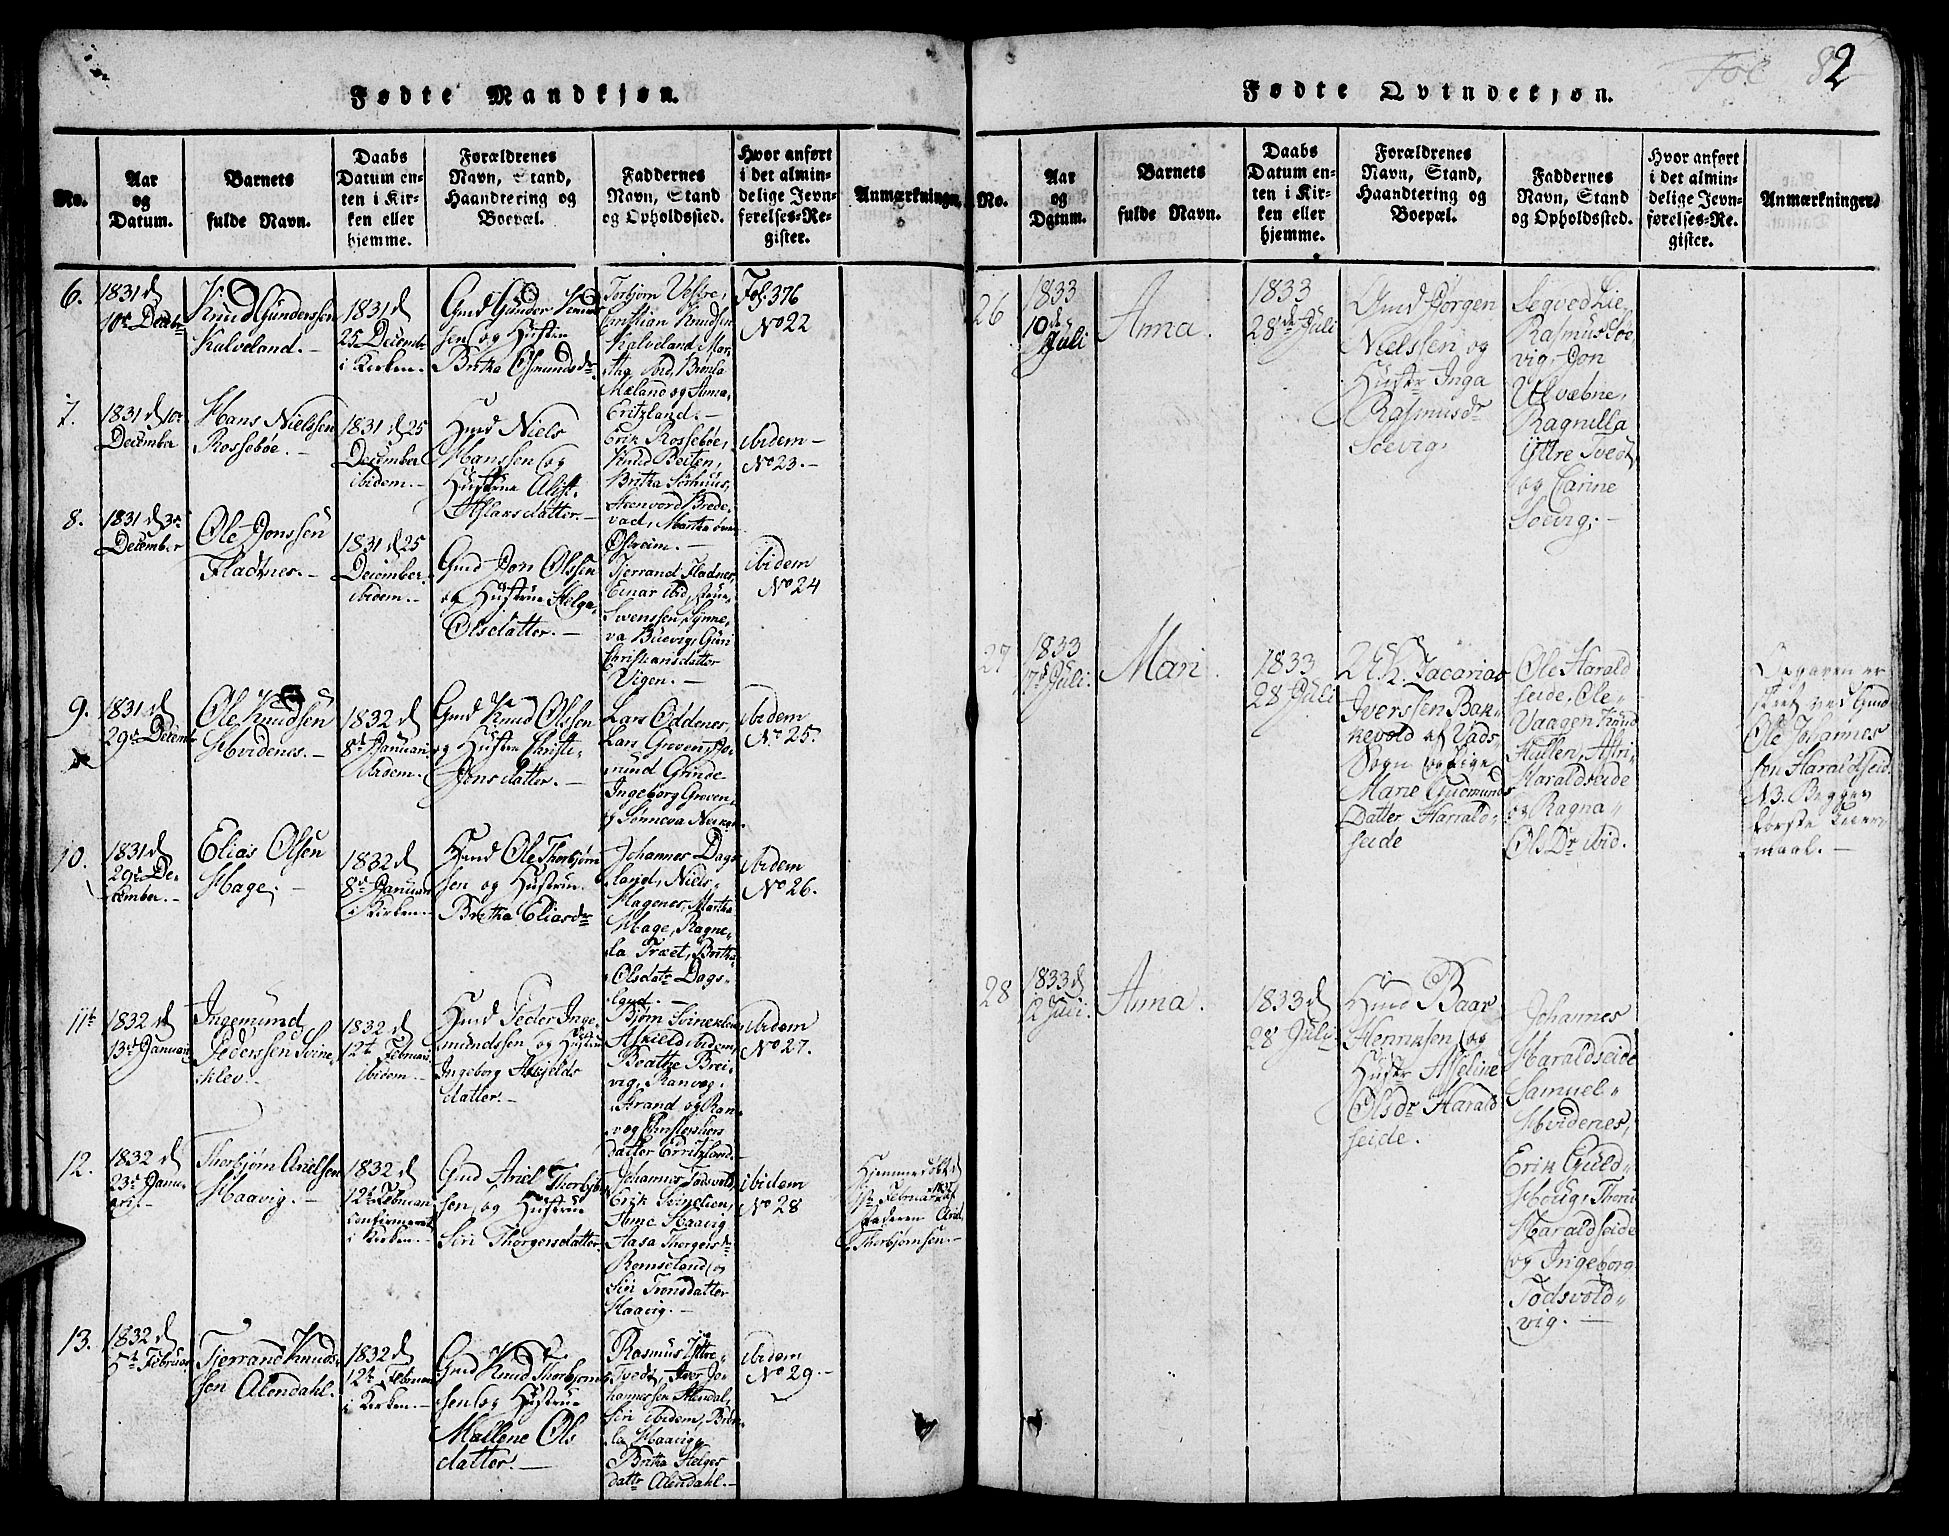 Fol 82
Fødte Mandkjøn.
No.
Aar
og
Datum.
Barnets
fulde Navn.
Daabs
Datum en-
ten i Kir-
ken eller
hjemme.
Forældrenes
Navn, Stand,
Haandtering og
Boepæl.
Faddernes
Navn, Stand
og Opholdssted.
Hvor anført
i det almin-
delige Jevn-
førelses-Re-
gister.
Anmærkninger.
6.
1831 d
10de Decbr
Knud Gundersen
Kalveland.
1831 d
25 Decembr
i Kirken.
Gmd Gunder
sen og Hustru
Britha Osmundsdr
Torbjørn Vestre,
Christian Knudsen
Kalveland, Mar-
ibid, Brita
Mæland og Anna
Eritzland.
Fol. 376
No 22
7.
1831 d 10de
December
Hans Nielssen
Rossebøe.
1831 d 25
December
ibidem.
Hmd Niels
Hanssen og
Hustrue
Aslaxdatter.
Erik Rossebøe,
Knud Beiten,
Britha
Steenvord Brede-
vad, Martha
Østreim.
ibidem
No 23.
8.
1831 d 3de
December
Ole Jonssen
Fladnes.
1831 d 25
December
ibidem.
Gmd Jon Olssen
og Hustrue Helga
Olsdatter.
Tjerrand Fladnes,
Einar ibid,
Svenssen, Synne-
va Buevig, Guri
Christiansdatter
Vigen.
ibidem
No 24
9.
1831 d
29de Decemb
Ole Knudsen
Hvidenes.
1832 d
8de Januari
ibidem.
Gmd Knud Olssen
og Hustrue Christi
Jonsdatter.
Lars Oddenes,
Lars Groven,
mund Grinde
Ingeborg Groven,
og Sønneva
ibidem
No 25.
10.
1831 d
29de De-
cember.
Elias Olsen
Hage.
1832 d
8de Januari
i Kirken.
Hmd Ole Thorbjørn
sen og Hustru
Britha Eliasdr
Johannes Dags-
land, Niels
Hagenes, Martha
Hage, Ragne-
la Træet, Britha
Olsdatr Dags-
land.
ibidem
No 26.
11te
1832 d
13de Januari
Ingemund
Pederssen Svine-
klev.
1832 d
12te Februari
ibidem.
Hmd Peder Inge-
mundssen og Hustru
Ingeborg
datter.
Bjørn Svineklev
Askield ibidem,
Beathe Brei-
vig, Ranveg
Strand og Ran-
veg Christophers
datter Erritzland.
ibidem
No 27.
12.
1832 d
23de Janu-
ari.
Thorbjørn Arielsen
Haavig.
1832 d
12te Februari
confirmeret
i Kirken.
Gmd Ariel Thorbjørn
sen og Hustrue
Siri Thorgersdatter.
Johannes Todsvold,
Erik
Anne Haavig
Aasa Thorgersdr
Romseland og
Siri Tronsdatter
Haavig.
ibidem
No 28
Hjemmedøbt d
Februar af
Faderen Ariel
Thorbjørnsen.
13.
1832 d
5te Februar
Tjerrand Knuds-
sen Alendahl.
1832 d
12te Februar
i Kirken.
Gmd Knud Thorbjørn
sen og Hustrue
Mallene Ols
datter.
Rasmus Yttre-
Tvedt, Iver Jo-
hannessen Alendal,
Siri ibidem,
Haavig
Britha Helges
dattr Alendahl.
ibidem
No 29.
Fødte Qvindekjøn.
No.
Aar
og
Datum.
Barnets
fulde Navn.
Daabs
Datum en-
ten i Kir-
ken eller
hjemme.
Forældrenes
Navn, Stand,
Haandtering og
Boepæl.
Faddernes
Navn, Stand
og Opholdssted.
Hvor anført
i det almin-
delige Jevn-
førelses-Re-
gister.
Anmærkninger.
26
1833
10de
Juli
Anna.
1833
28de Juli
Gmd Jørgen
Nielssen og
Hustr Inga
Rasmusdr
Soevig,
Segved Lie,
Rasmus Soe-
vig, Jon
Ulvæbne,
Ragnilla
Yttre Tvedt
og Carine
Soevig.
27
1833
17de Juli.
Mari
1833
28 Juli
U.K. Zacarias
Iverssen Bak-
kevold af Vads
Sogn og Pige
Marie Gudmunds
Datter Harrald-
seide
Ole Harald
seide, Ole
Vaagen,
Hatlen,
Haraldseide
og Ragna
Ols Dr ibid.
Opgaven er
skeet ved Gmd
Ole Johannes
sen Haraldseid
N3. Begges
første Leier-
maal.
28
1833 d
12 Juli.
Anna.
1833 d
28 Juli
Hmd Baar
Henriksen og
Hustr Asseline
Olsdr Harald
seide.
Johannes
Haraldseide
Samuel
Hvidenes,
Erik Guld-
skoug,
Haraldseide
og Ingeborg
Todsvold-
vig.